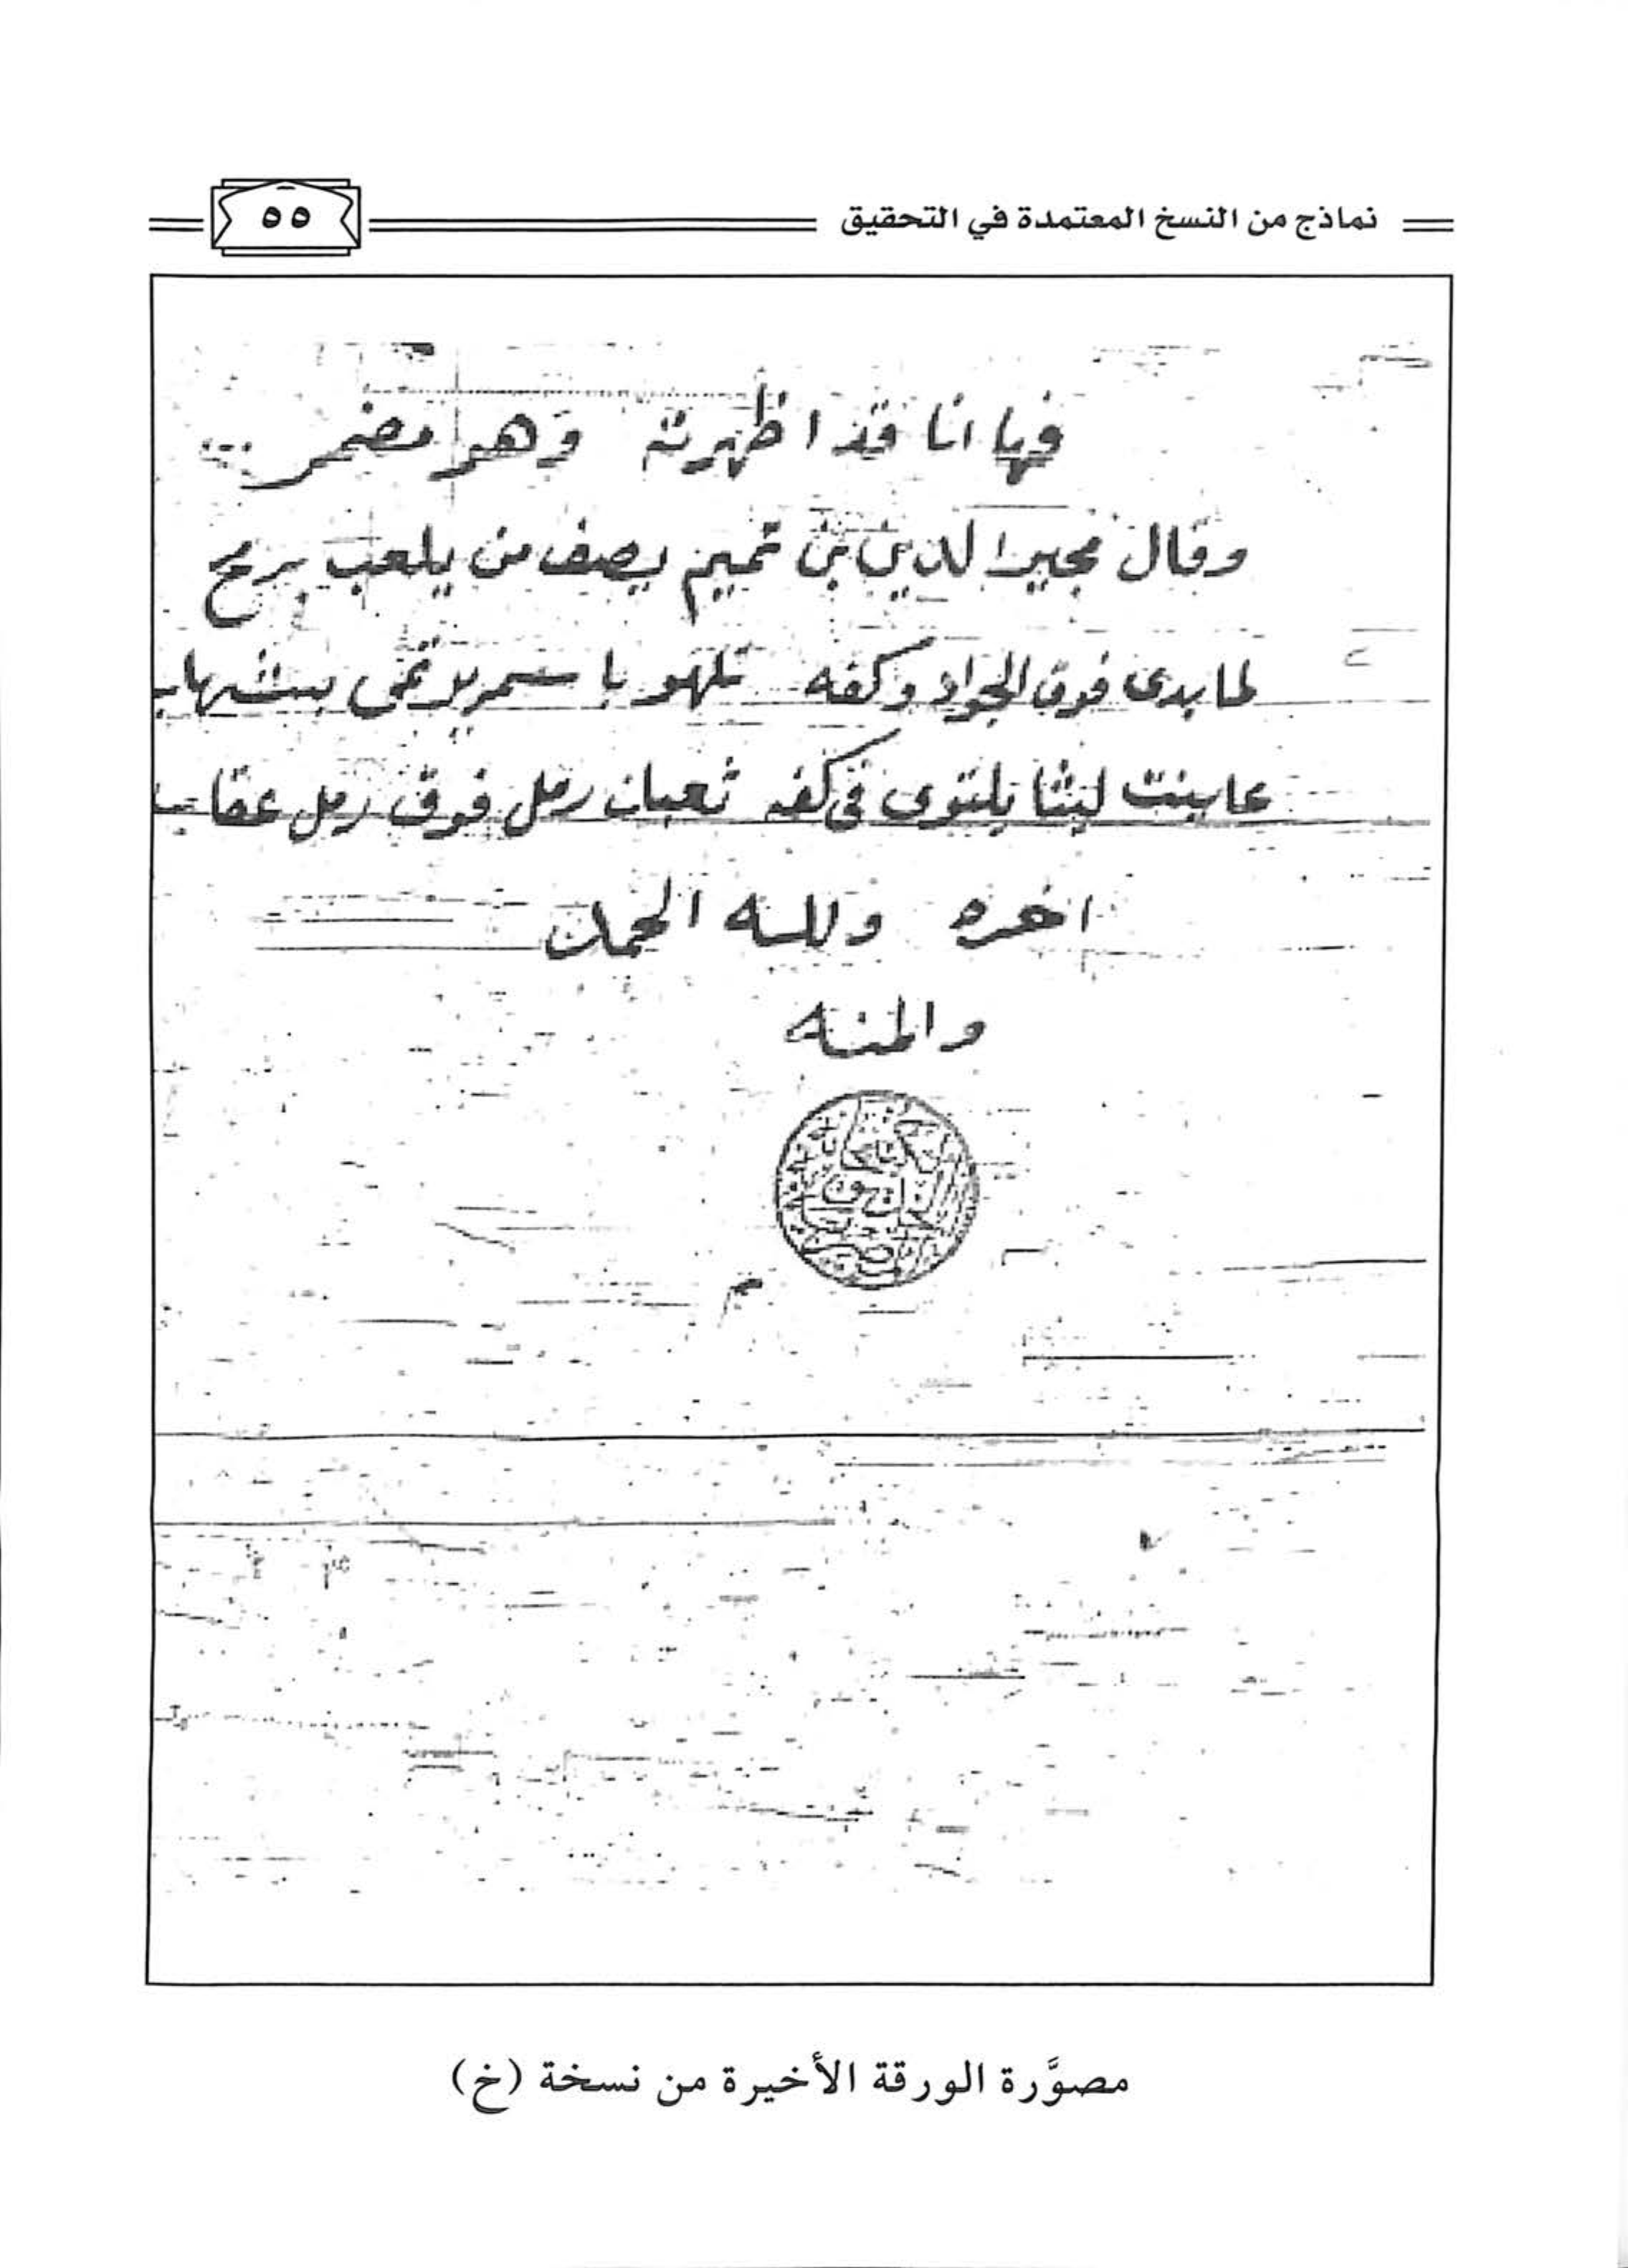 نماذج من النسخ المعتمدة في التحقيق
٥٥
فها انا قد اظهرته وهو مضمر
وقال مجير الدين بن تميم يصف من يلعب برمح
لما بدى فوق الجواد وكفه تلهو باسمر يرتمى بشهاب
عاينت ليثا يلتوى فى كفه ثعبان رمل فوق رمل عقاب
اخره ولله الحمد
والمنه
م
مصوَّرة الورقة الأخيرة من نسخة (خ)